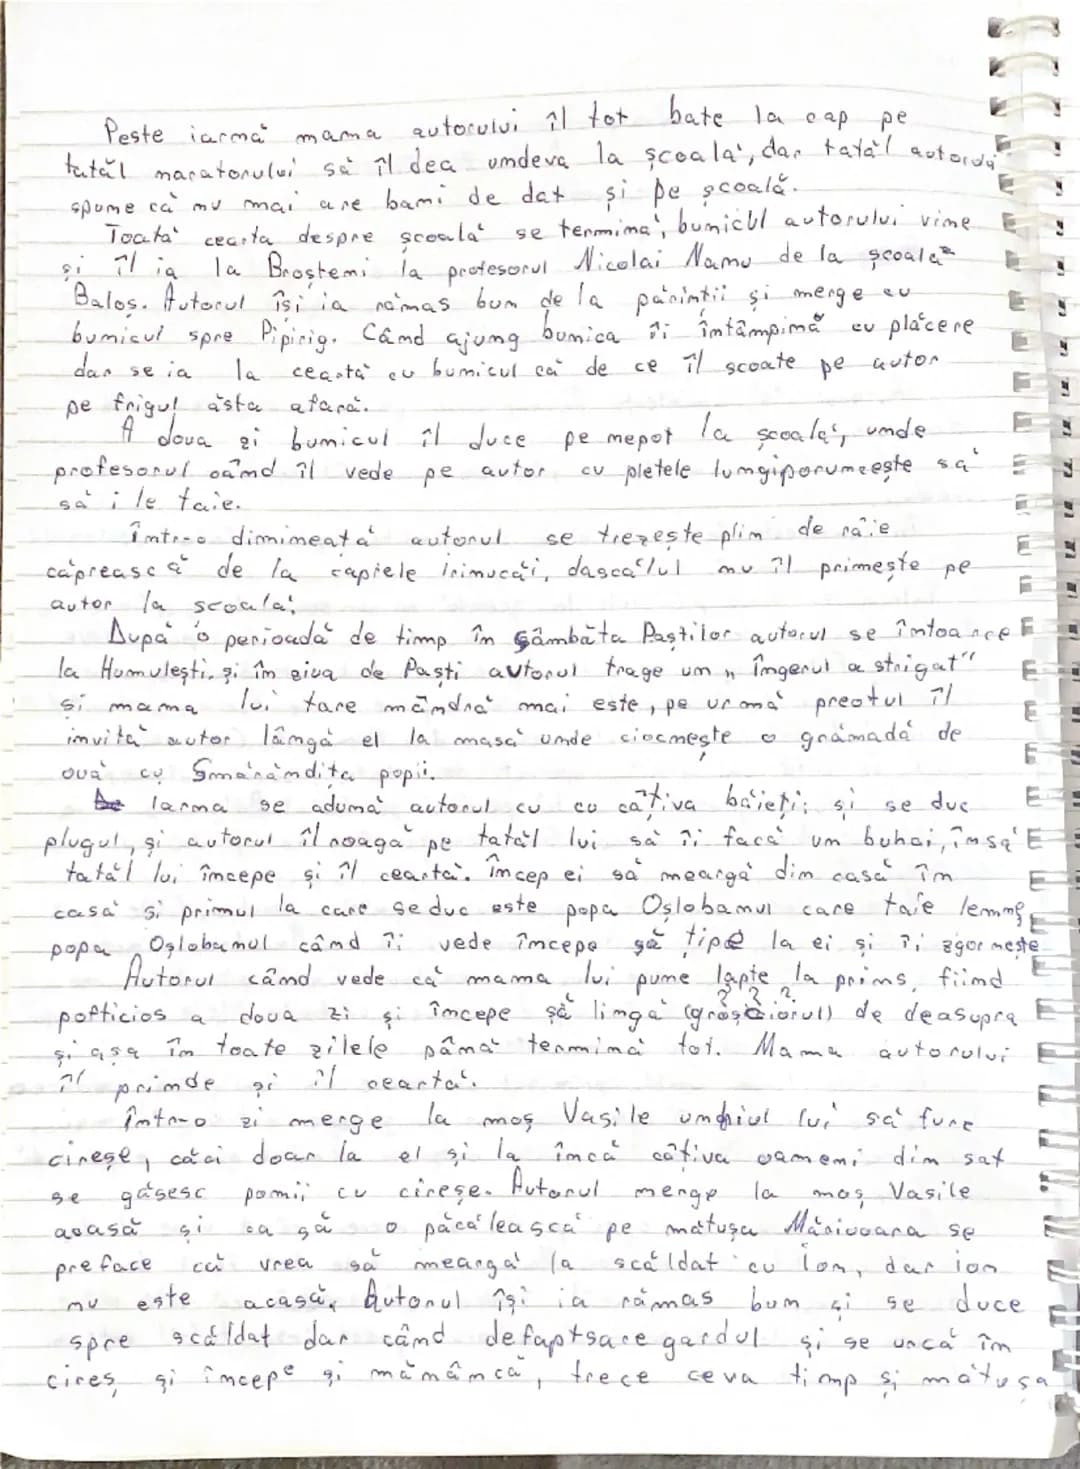 Peste iarnă mama autorului îl tot bate la cap pe
tatăl naratorului să îl dea undeva la școală, dar tatăl autorului
spune că nu mai are bani de dat și pe școală.
Toată cearta despre școală se termină, bunicul autorului vine
și îl ia la Broșteni la profesorul Nicolai Nanu de la școala
Baloș. Autorul își ia rămas bun de la părinții și merge cu
bunicul spre Pipirig. Când ajung bunica îi întâmpină cu plăcere
dar se ia la ceartă cu bunicul că de ce îl scoate pe autor
pe frigul ăsta afară.
A doua zi bunicul îl duce pe nepot la școală, unde
profesorul când îl vede pe autor cu pletele lungi porumcește să
să i le taie.
Într-o dimineață autorul se trezește plin de râie
căprească de la capiele Irinucăi, dascălul nu îl primește pe
autor la scoală.
După o perioadă de timp în Sâmbăta Paștilor autorul se întoarce
la Humulești. și în ziua de Paști autorul trage un „ îngerul a strigat"
și mama lui tare mândră mai este, pe urmă preotul îl
invită autor lângă el la masă unde ciocnește o grămadă de
ouă cu Smărăndița popii.
Iarna se adună autorul cu cu câțiva băieți; și se duc
plugul, și autorul îl roagă pe tatăl lui să îi facă un buhai, însă
tatăl lui începe și îl ceartă. Încep ei să meargă din casă în
casă și primul la care se duc este popa Oșlobanul care taie lemne,
popa Oșlobanul când îi vede începe să tipe la ei și îi zgornește
Autorul când vede că mama lui pune lapte la prins, fiind
pofticios a doua zi și începe să lingă (groșciorul) de deasupra
și așa în toate zilele până termină tot. Mama autorului
îl prinde și îl ceartă.
Într-o zi merge la moș Vasile unchiul lui să fure
cireșe, căci doar la el și la încă câțiva oameni din sat
se găsesc pomii cu cireșe. Autorul merge la moș Vasile
acasă și ca să o păcălească pe mătușa Măriuoara se
preface că vrea să meargă la scăldat cu Ion, dar ion
nu este acasă, Autorul își ia rămas bun și se duce
spre scăldat dar când defapt sare gardul și se urcă în
cireș și începe și mănâncă, trece ceva timp și mătușa